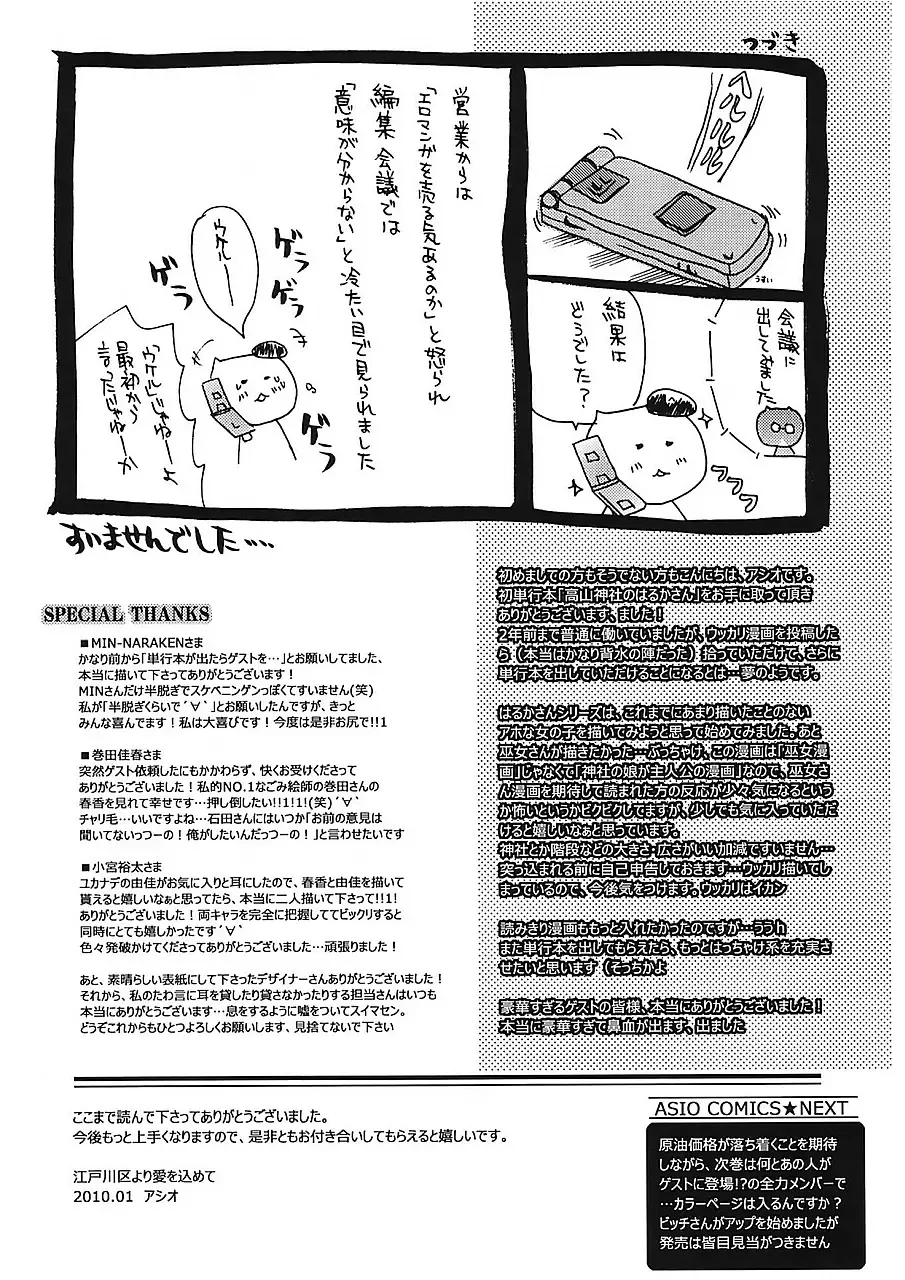 つづき
ヘルルル
うすい
会議に
出してみました
結果は
どうでした？
つつつ
営業からは
「エロマンガを売る気あるのか」と怒られ
編集会議では
「意味が分からない」と冷たい目で見られました
ウケルーー
ゲラ
ゲラ
ゲラ
ゲラ
「ウケル」じゃねーよ
最初から
言ったじゃねーか
すいませんでした…
初めましての方もそうでない方もこんにちは、アシオです。
初単行本「高山神社のはるかさん」をお手に取って頂き
ありがとうございます、ました！
2年前まで普通に働いていましたが、ウッカリ漫画を投稿した
ら（本当はかなり背水の陣だった）拾っていただけて、さらに
単行本を出していただけることになるとは…夢のようです。
はるかさんシリーズは、これまでにあまり描いたことのない
アホな女の子を描いてみようと思って始めてみました。あと
巫女さんが描きたかった…ぶっちゃけ、この漫画は「巫女漫
画」じゃなくて「神社の娘が主人公の漫画」なので、巫女さ
ん漫画を期待して読まれた方の反応が少々気になるという
か怖いというかビクビクしてますが、少しでも気に入っていただ
けると嬉しいなぁと思っています。
神社とか階段などの大きさ・広さがいい加減ですいません…
突っ込まれる前に自己申告しておきます…ウッカリ描いてし
まっているので、今後気をつけます。ウッカリはイカン
読みきり漫画ももっと入れたかったのですが…ううｈ
また単行本を出してもらえたら、もっとはっちゃけ系を充実さ
せたいと思います（そっちかよ
豪華すぎるゲストの皆様、本当にありがとうございました！
本当に豪華すぎて鼻血が出ます、出ました
SPECIAL THANKS
■MIN-NARAKENさま
かなり前から「単行本が出たらゲストを…」とお願いしてました、
本当に描いて下さってありがとうございます！
MINさんだけ半脱ぎでスケベニンゲンっぽくてすいません(笑)
私が「半脱ぎくらいで´∀`」とお願いしたんですが、きっと
みんな喜んでます！私は大喜びです！今度は是非お尻で!!1
■巻田佳春さま
突然ゲスト依頼したにもかかわらず、快くお受けくださって
ありがとうございました！私的NO.1なごみ絵師の巻田さんの
春香を見れて幸せです…押し倒したい!!1!1!(笑)´∀`
チャリ毛…いいですよね…石田さんにはいつか「お前の意見は
聞いてないっつーの！俺がしたいんだっつーの！」と言わせたいです
■小宮裕太さま
ユカナデの由佳がお気に入りと耳にしたので、春香と由佳を描いて
貰えると嬉しいなぁと思ってたら、本当に二人描いて下さって!!1!
ありがとうございました！両キャラを完全に把握しててビックリすると
同時にとても嬉しかったです´∀`
色々発破かけてくださってありがとうございました…頑張りました！
あと、素晴らしい表紙にして下さったデザイナーさんありがとうございました！
それから、私のたわ言に耳を貸したり貸さなかったりする担当さんはいつも
本当にありがとうございます…息をするように嘘をついてスイマセン。
どうぞこれからもひとつよろしくお願いします、見捨てないで下さい
ここまで読んで下さってありがとうございました。
今後もっと上手くなりますので、是非ともお付き合いしてもらえると嬉しいです。
江戸川区より愛を込めて
2010.01 アシオ
ASIO COMICS★NEXT
原油価格が落ち着くことを期待
しながら、次巻は何とあの人が
ゲストに登場!?の全力メンバーで
…カラーページは入るんですか？
ビッチさんがアップを始めましたが
発売は皆目見当がつきません